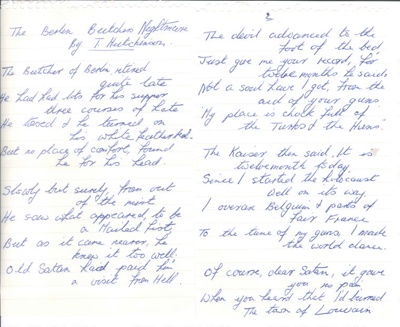 The Berlin Butchers Nightmare
By T. Hutchinson.
The Butcher of Berlin retired
quite late
He had had lots for his supper
three courses of hate
He tossed & he turned on
his white feather bed.
But no place of comfort, found
he for his head.
Slowly but surely, from out
of the mist
He saw what appeared, to be
a Mailed Fist,
But as it came nearer, he
knew it too well.
Old Satan had paid him,
a visit from Hell.
2
The devil advanced to the
foot of the bed
Just give me your record, for
twelve months he said
Not a soul have I got, from the
aid of your guns
My place is chock full of
the Turks & the Huns.
The Kaiser then said, It is
twelve month today
Since I started the holocaust
well on its way
I overran Belgium & parts of
Fair France
To the tune of my guns, I made
the world dance.
Of course, dear Satan, it gave
you no pain
When you heard that I'd burned
The town of Louvain